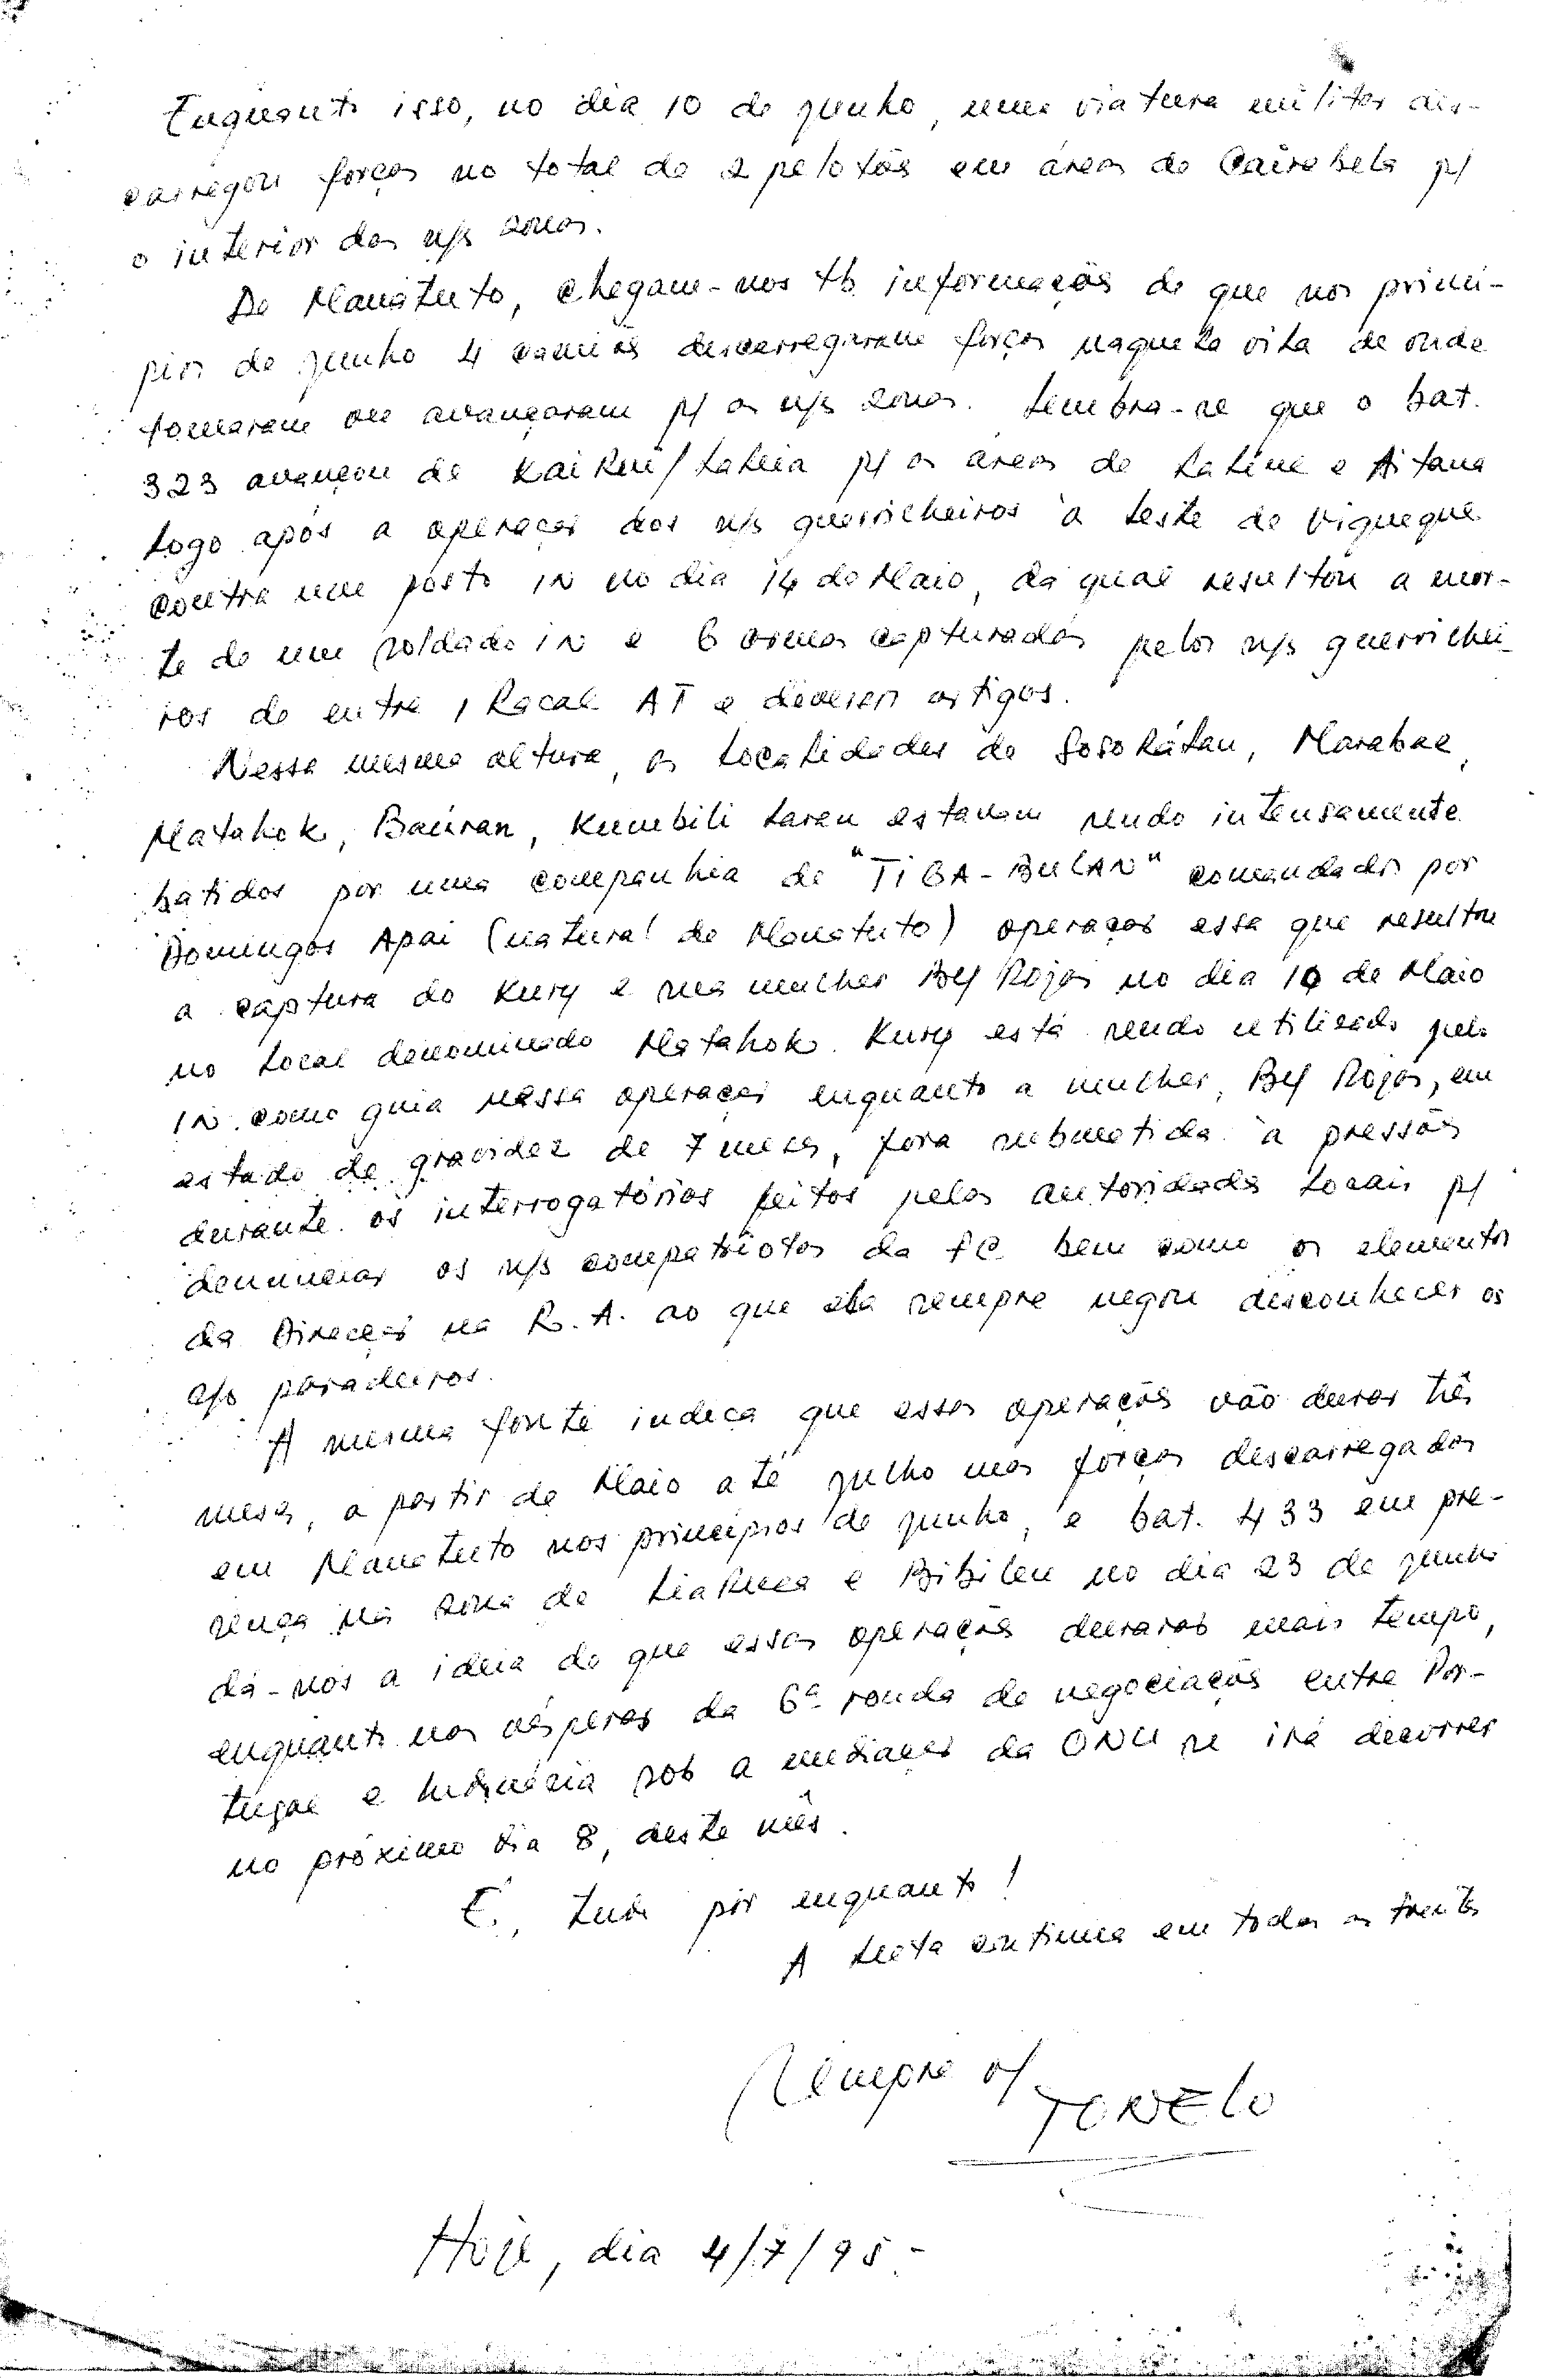 Enquanto isso, no dia 10 de junho, uma viatura militar des-
carregou forças no total de 2 pelotõs em áreas de Cairabela p/
o interior das n/s zonas.
De Manatuto, chegam-nos tb informaçõs de que nos princi-
pios de junho 4 camiõs descarregaram forças naquela vila de onde
tomaram ou avançaram p/ as n/s zonas. Lembra-se que o bat.
323 avançou de Kairui/Laleia p/ as áreas de Laline e Aitana
logo após a operação dos n/s guerrilheiros à leste de Viqueque
contra um posto IN no dia 14 de Maio, da qual resultou a mor-
te de um soldado IN e 6 armas capturadas pelos n/s guerrilhei-
ros de entre 1 Racal AT e diversos artigos.
Nessa mesma altura, as localidades de Soso Látan, Marabae,
Matahok, Baúran, Kumbili Laren estavam sendo intensamente
batidas por uma companhia de "TIGA-BULAN" comandada por
Domingos Apai (natural de Manatuto) operação essa que resultou
a captura do Kury e sua mulher By Rojas no dia 10 de Maio
no local denominado Matahok. Kury está sendo utilizado pelo
IN como guia nessa operação enquanto a mulher, By Rojas, em
estado de gravidez de 7 meses, fora submetida à pressõs
durante os interrogatórios feitos pelas autoridades locais p/
denunciar os n/s compatriotas da FC bem como os elementos
da Direcção na R.A. ao que ela sempre negou desconhecer os
s/s paradeiros.
A mesma fonte indica que essas operaçõs vão durar três
meses, a partir de Maio até julho mas forças descarregadas
em Manatuto nos princípios de junho, e bat. 433 em pre-
sença na zona de Liaruca e Bibileu no dia 23 de junho
dá-nos a ideia de que essas operaçõs durarão mais tempo,
enquanto nas vésperas da 6ª ronda de negociaçõs entre Por-
tugal e Indonésia sob a mediação da ONU se irá decorrer
no próximo dia 8, deste mês.
É, tudo por enquanto!
A luta continua em todas as frentes
Sempre v/
TONELO
Hoje, dia 4/7/95-